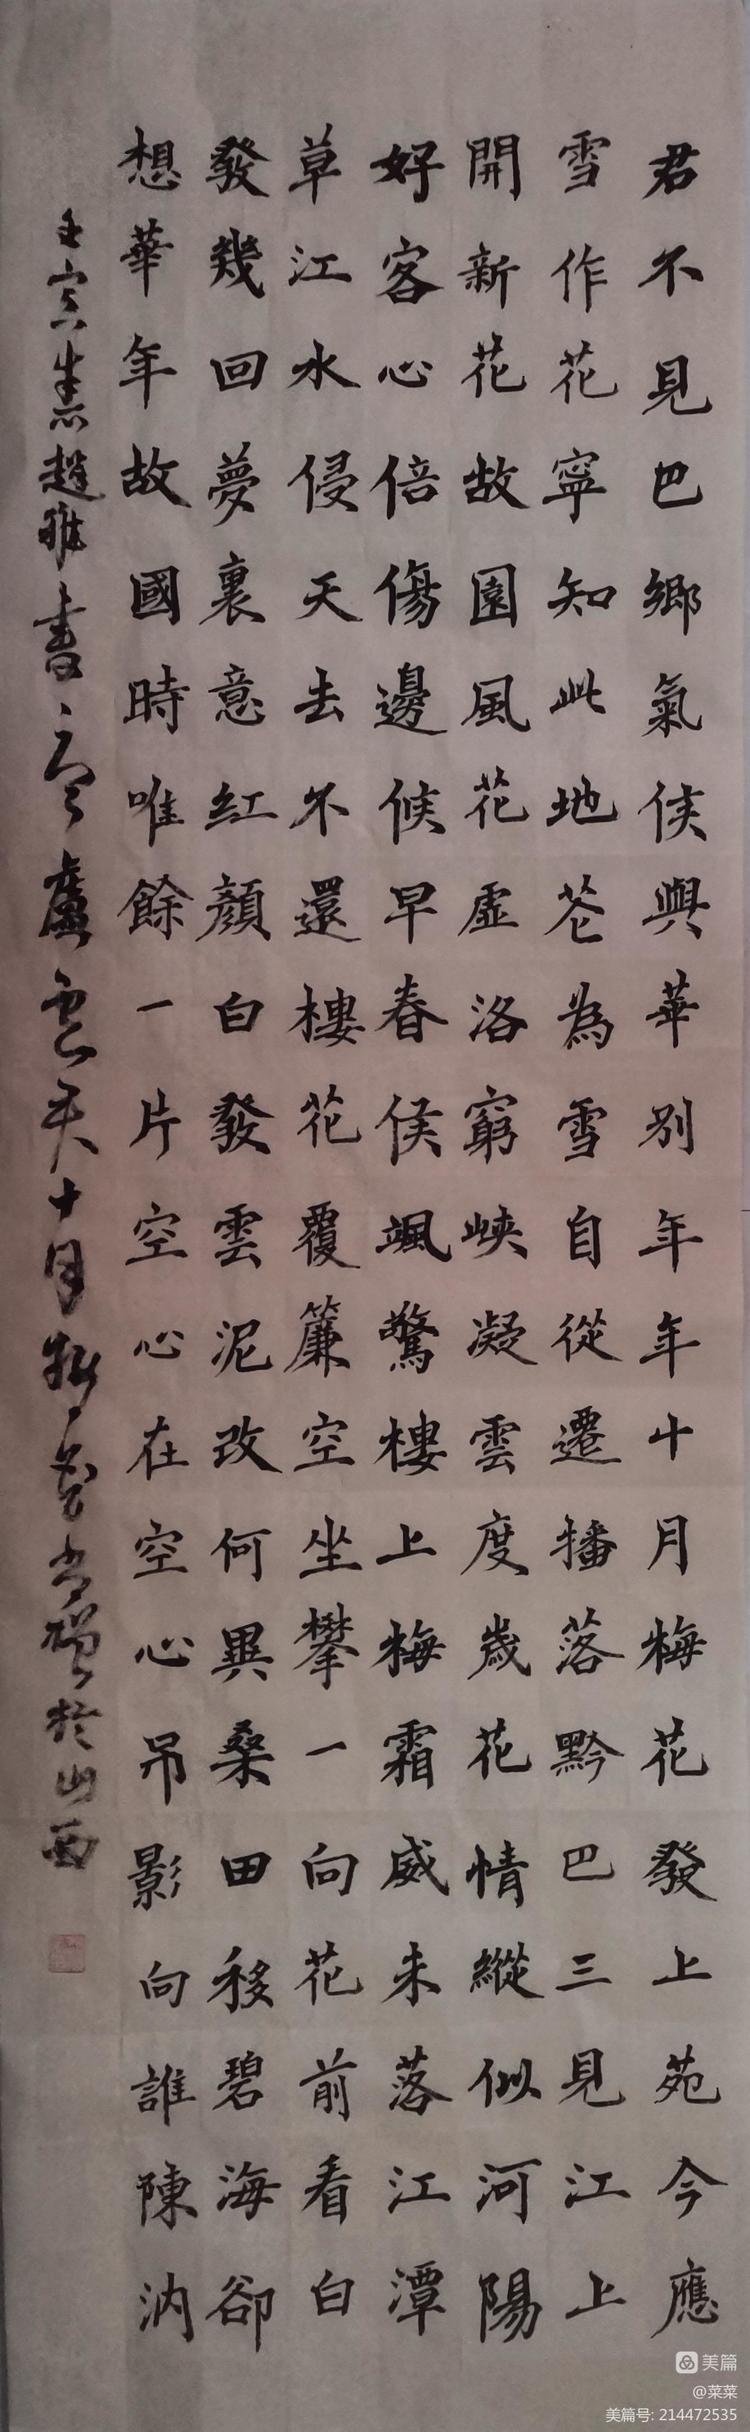 君不見巴鄉氣侯與華別年年十月梅花發上苑今應
雪作花寧知此地花為雪自從遷播落黔巴三見江上
開新花故園風花虛洛窮峽凝雲度歲花情縱似河陽
好客心倍傷邊候早春侯颯驚樓上梅霜威未落江潭
草江水侵天去不還樓花覆簾空坐攀一向花前看白
發幾回夢裏意紅顏白發雲泥改何異桑田移碧海卻
想華年故國時唯餘一片空心在空心吊影向誰陳汭
壬寅趙雅書天十月於山西
美篇
@菜菜
美篇号: 214472535